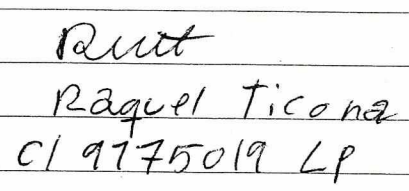 Rutt
Raquel Ticona
CI 9775019 LP